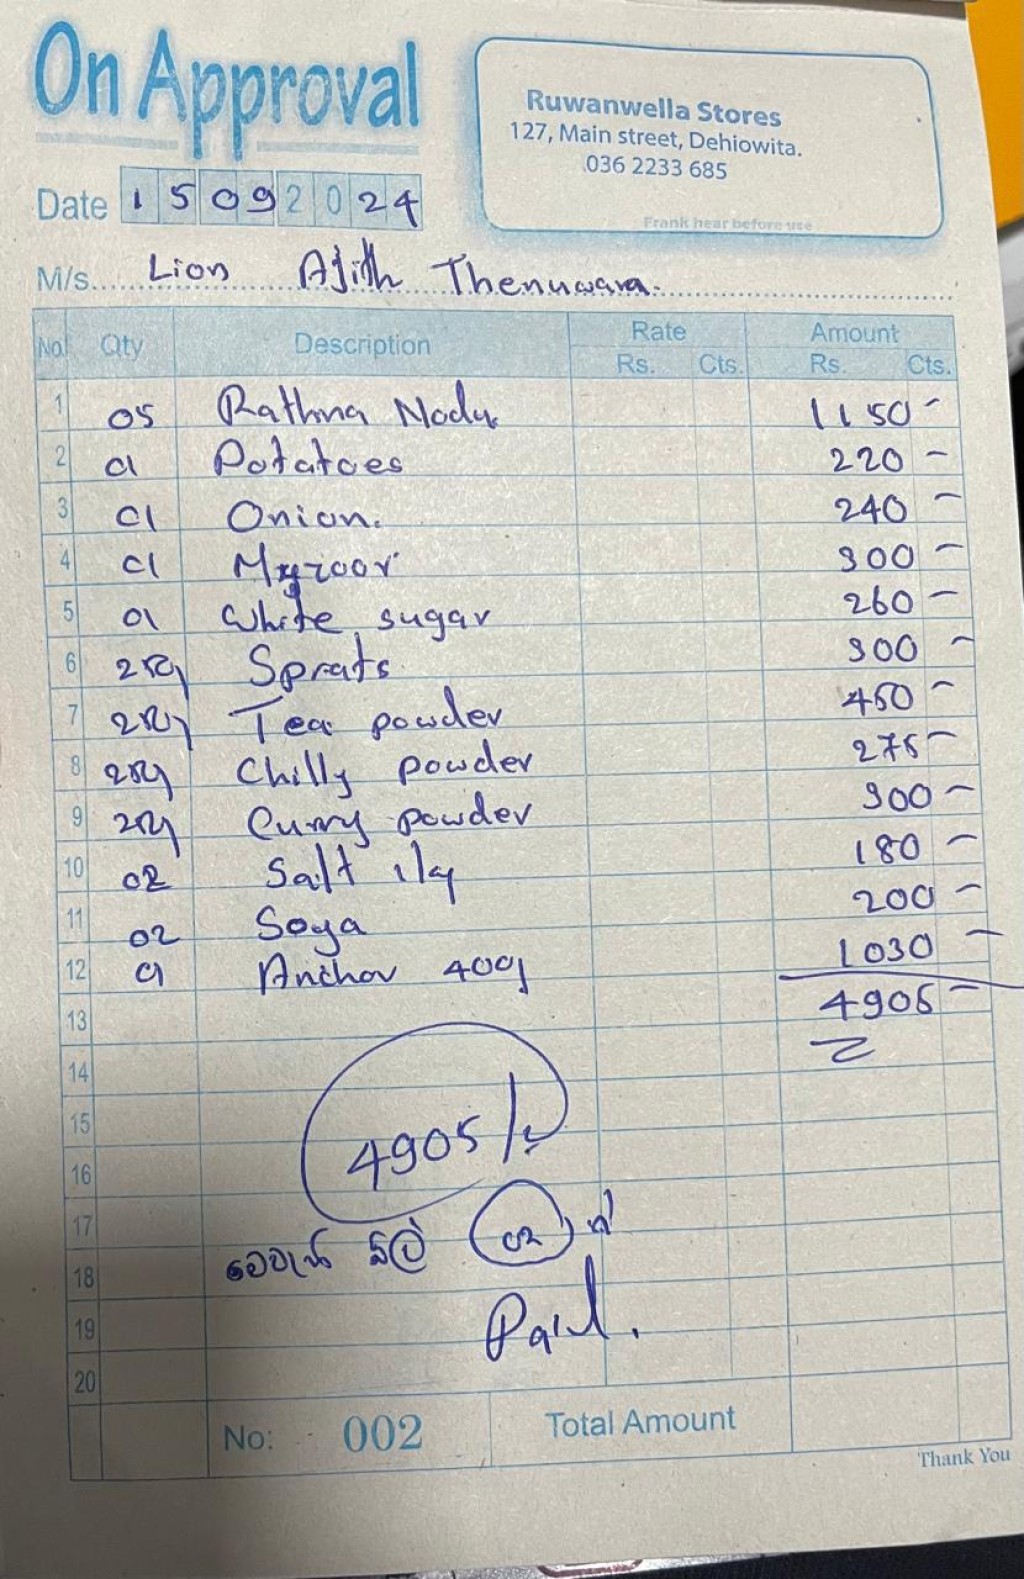 On Approval
Ruwanwella Stores
127, Main street, Dehiowita.
036 2233 685
Frank hear before use
Date 15092024
M/s. Lion Ajith Thenuwara.
No. Qty Description Rate Rs. Cts. Amount Rs. Cts.
1 05 Rathna Nadu 1150 -
2 01 Potatoes 220 -
3 01 Onion. 240 -
4 01 300 -
5 01 White sugar 260 -
6 Sprats 300 -
7 Tea powder 450 -
8 Chilly powder 275 -
9 Curry powder 300 -
10 02 Salt 1kg 180 -
11 02 Soya 200 -
12 01 Anchor 400g 1030 -
13 4905 -
14
15
16 4905/-
17
18 බිල් 02
19 Paid.
20
No: 002 Total Amount
Thank You